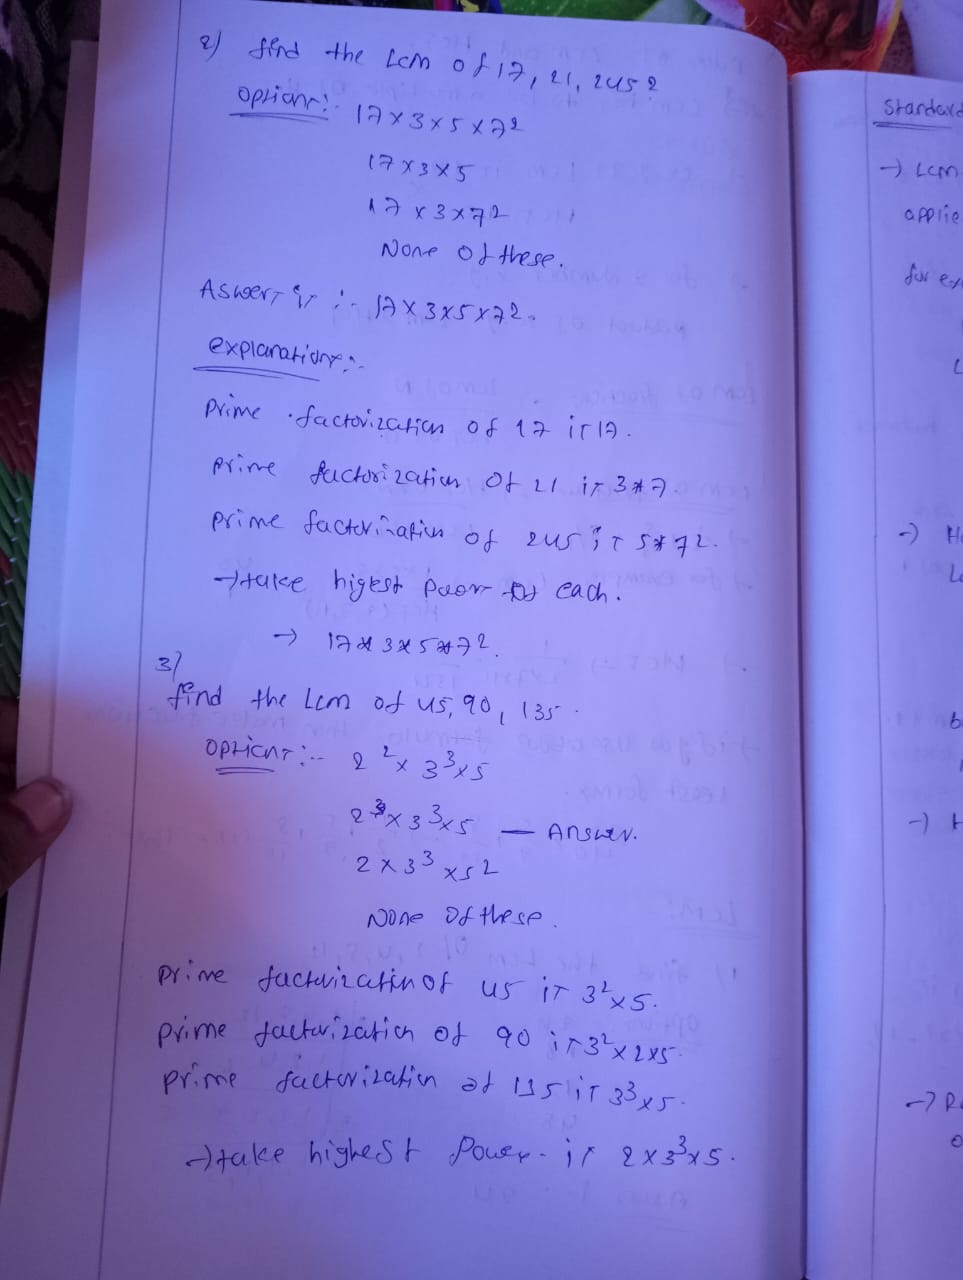 2) find the Lcm of 17, 21, 245 ?
Options:- 17 x 3 x 5 x 7²
17 x 3 x 5
17 x 3 x 7²
None of these.
Aswers is :- 17 x 3 x 5 x 7².
explanations:-
Prime factorization of 17 is 17.
Prime factorization of 21 is 3*7
Prime factorization of 245 is 5*7².
→ take higest of each.
→ 17 * 3 * 5 * 7².
3)
find the Lcm of 45, 90, 135.
Options:- 2² x 3³ x 5
x 3³ x 5 — Answer.
2 x 3³ x 5²
None of these.
Prime factorization of 45 is 3² x 5.
Prime factorization of 90 is 3² x 2 x 5.
Prime factorization of 135 is 3³ x 5.
→ take highest Power. is 2 x 3³ x 5.
Standard
→ Lcm
applie
for ex
L
→ H
L
b
→ H
→ R
o